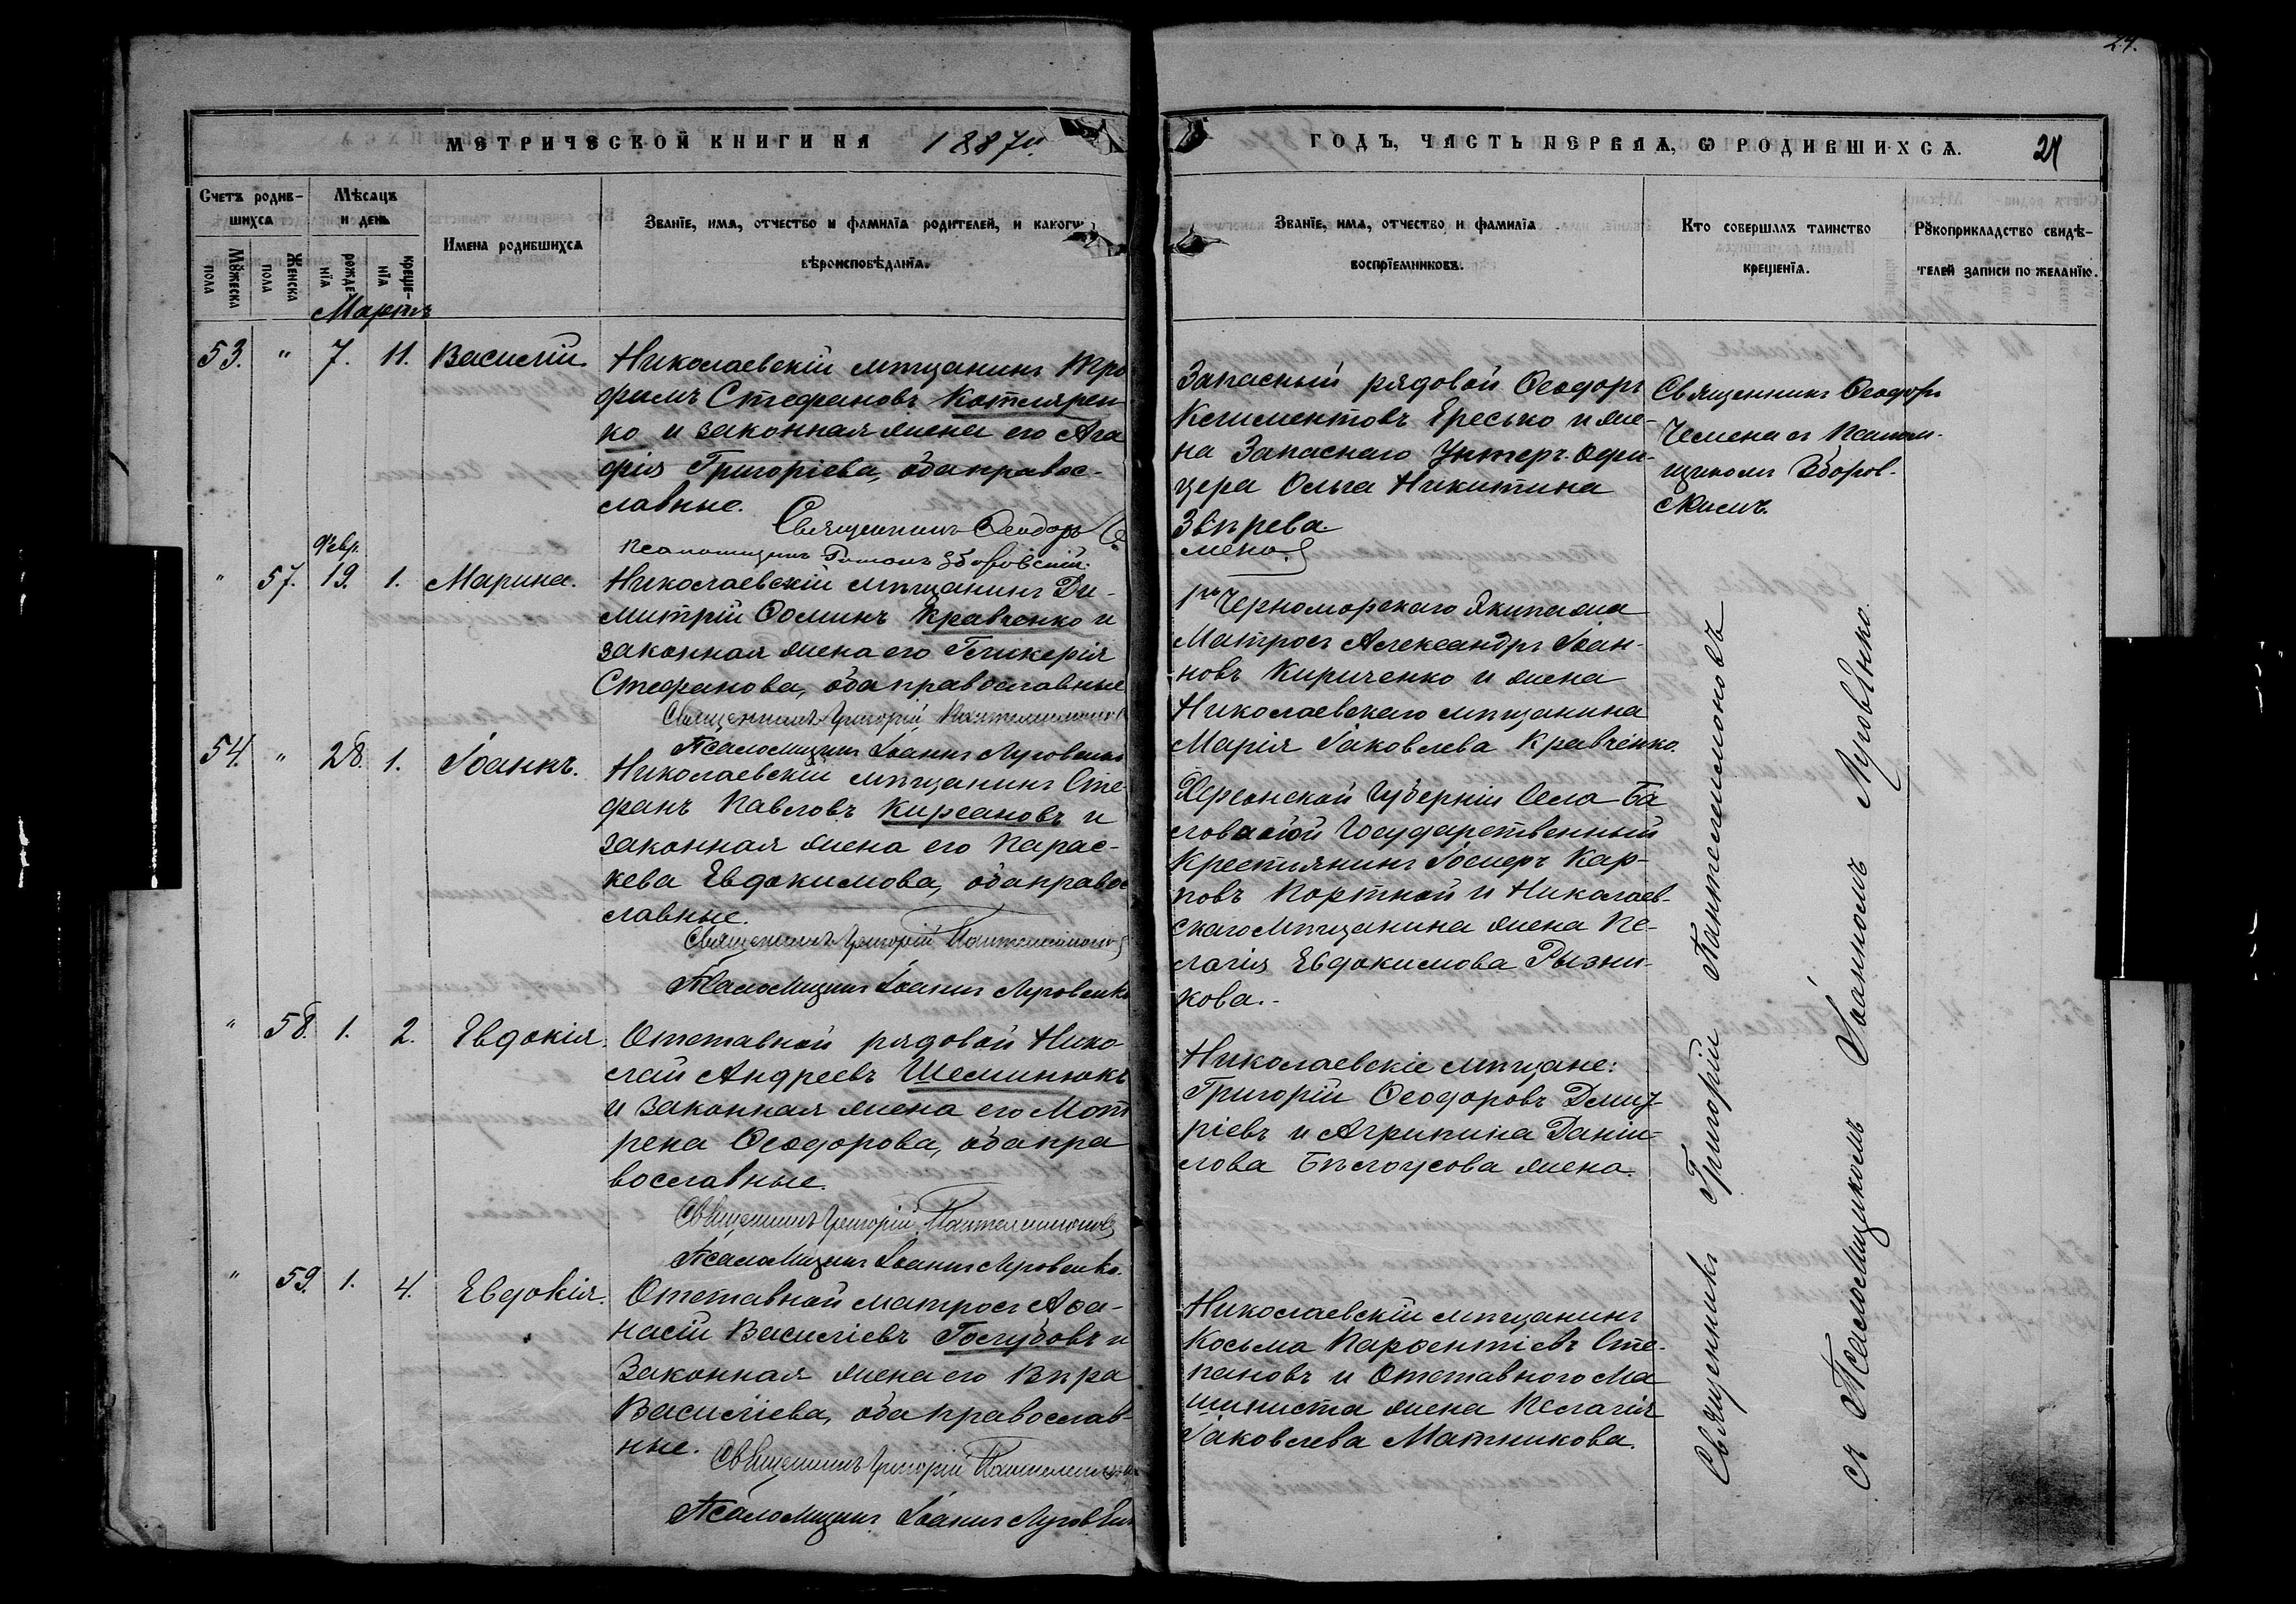 24.
МЕТРИЧЕСКОЙ КНИГИ НА 1887й
ГОДЪ, ЧАСТЬ ПЕРВАЯ, Ѡ РОДИВШИХСЯ. 24
Счетъ родив-
шихся
Мѹжеска
пола
Женска
пола
Мѣсяцъ
и день
рожде
нїя
креще-
нїя
Имена родившихся
Званїе, имя, отчество и фамилїя родителей, и какогѡ
вѣроисповѣданїя.
Званїе, имя, отчество и фамилїя
воспрїемниковъ.
Кто совершалъ таинство
крещенїя.
Рѹкоприкладство свидѣ-
телей записи по желанїю.
Мартъ
53. " 7. 11. Василій
Николаевскій мѣщанинъ Тро
фимъ Стефановъ Котлярен
ко и законная жена его Ага
фія Григоріева, оба правос-
славные.
Священникъ Ѳеодоръ Че
мена
Псаломщикъ Зборовскій.
Запасный рядовой Ѳеодоръ
Климентовъ Ересько и же-
на Запаснаго Унтеръ-Офи-
цера Ольга Никитина
Звѣрева.
Священникъ Ѳеодоръ
Чемена съ Псалом-
щикомъ Зборов-
скимъ
Февр.
" 57. 19. 1. Марина.
Николаевскій мѣщанинъ Ди-
митрій Ѳоминъ Кравченко и
законная жена его Гликерія
Стефанова, оба православные
Священникъ Григорій Пантелеимонов
Псаломщикъ Іоаннъ Луговенко
1го Черноморскаго Экипажа
Матросъ Александръ Іоан-
новъ Кириченко и жена
Николаевскаго мѣщанина
Марія Іаковлева Кравченко.
54. " 28. 1. Іоаннъ.
Николаевскій мѣщанинъ Сте
фанъ Павловъ Кирсановъ и
законная жена его Парас-
кева Евдокимова, оба правос
славные.
Священникъ Григорій Пантелеимонов
Псаломщикъ Іоаннъ Луговенко
Херсонской Губерніи Села Ба
словской Государственный
Крестьянинъ Іосифъ Кар-
повъ Портной и Николаев-
скаго Мѣщанина жена Пе-
лагія Евдокимова Рызни-
кова.-
" 58. 1. 2. Евдокія.
Отставной рядовой Нико
лай Андреевъ Шеминюкъ
и законная жена его Мот
рена Ѳеодорова, оба пра
вославные.
Священникъ Григорій Пантелеимоновъ
Псаломщикъ Іоаннъ Луговенко.
Николаевскіе мѣщане:
Григорій Ѳеодоровъ Дмит-
ріевъ и Агрипина Даніи-
лова Бѣлоусова жена.
" 59. 1. 4. Евдокія.
Отставной матросъ Аѳа-
насій Василіевъ Голубовъ и
Законная жена его Вѣра
Василіева, оба православ-
ные.
Священникъ Григорій Пантелеимонов
Псаломщикъ Іоаннъ Луговен
Николаевскій мѣщанинъ
Косьма Парѳентіевъ Сте-
пановъ и Отставного Ма
шиниста жена Пелагія
Іаковлева Матникова.
Священникъ Григорій Пантелеимоновъ
съ Псаломщикомъ Іоанномъ Луговенко.